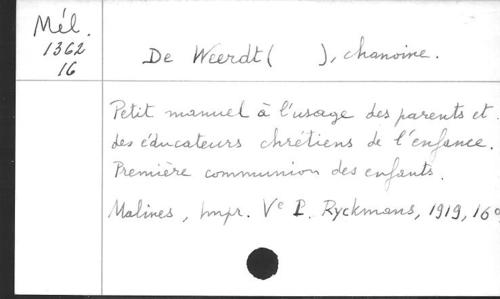 Mél.
1362
16
De Weerdt (      ), chanoine.
Petit manuel à l'usage des parents et
des éducateurs chrétiens de l'enfance.
Première communion des enfants.
Malines, Impr. Ve P. Ryckmans, 1919, 16°